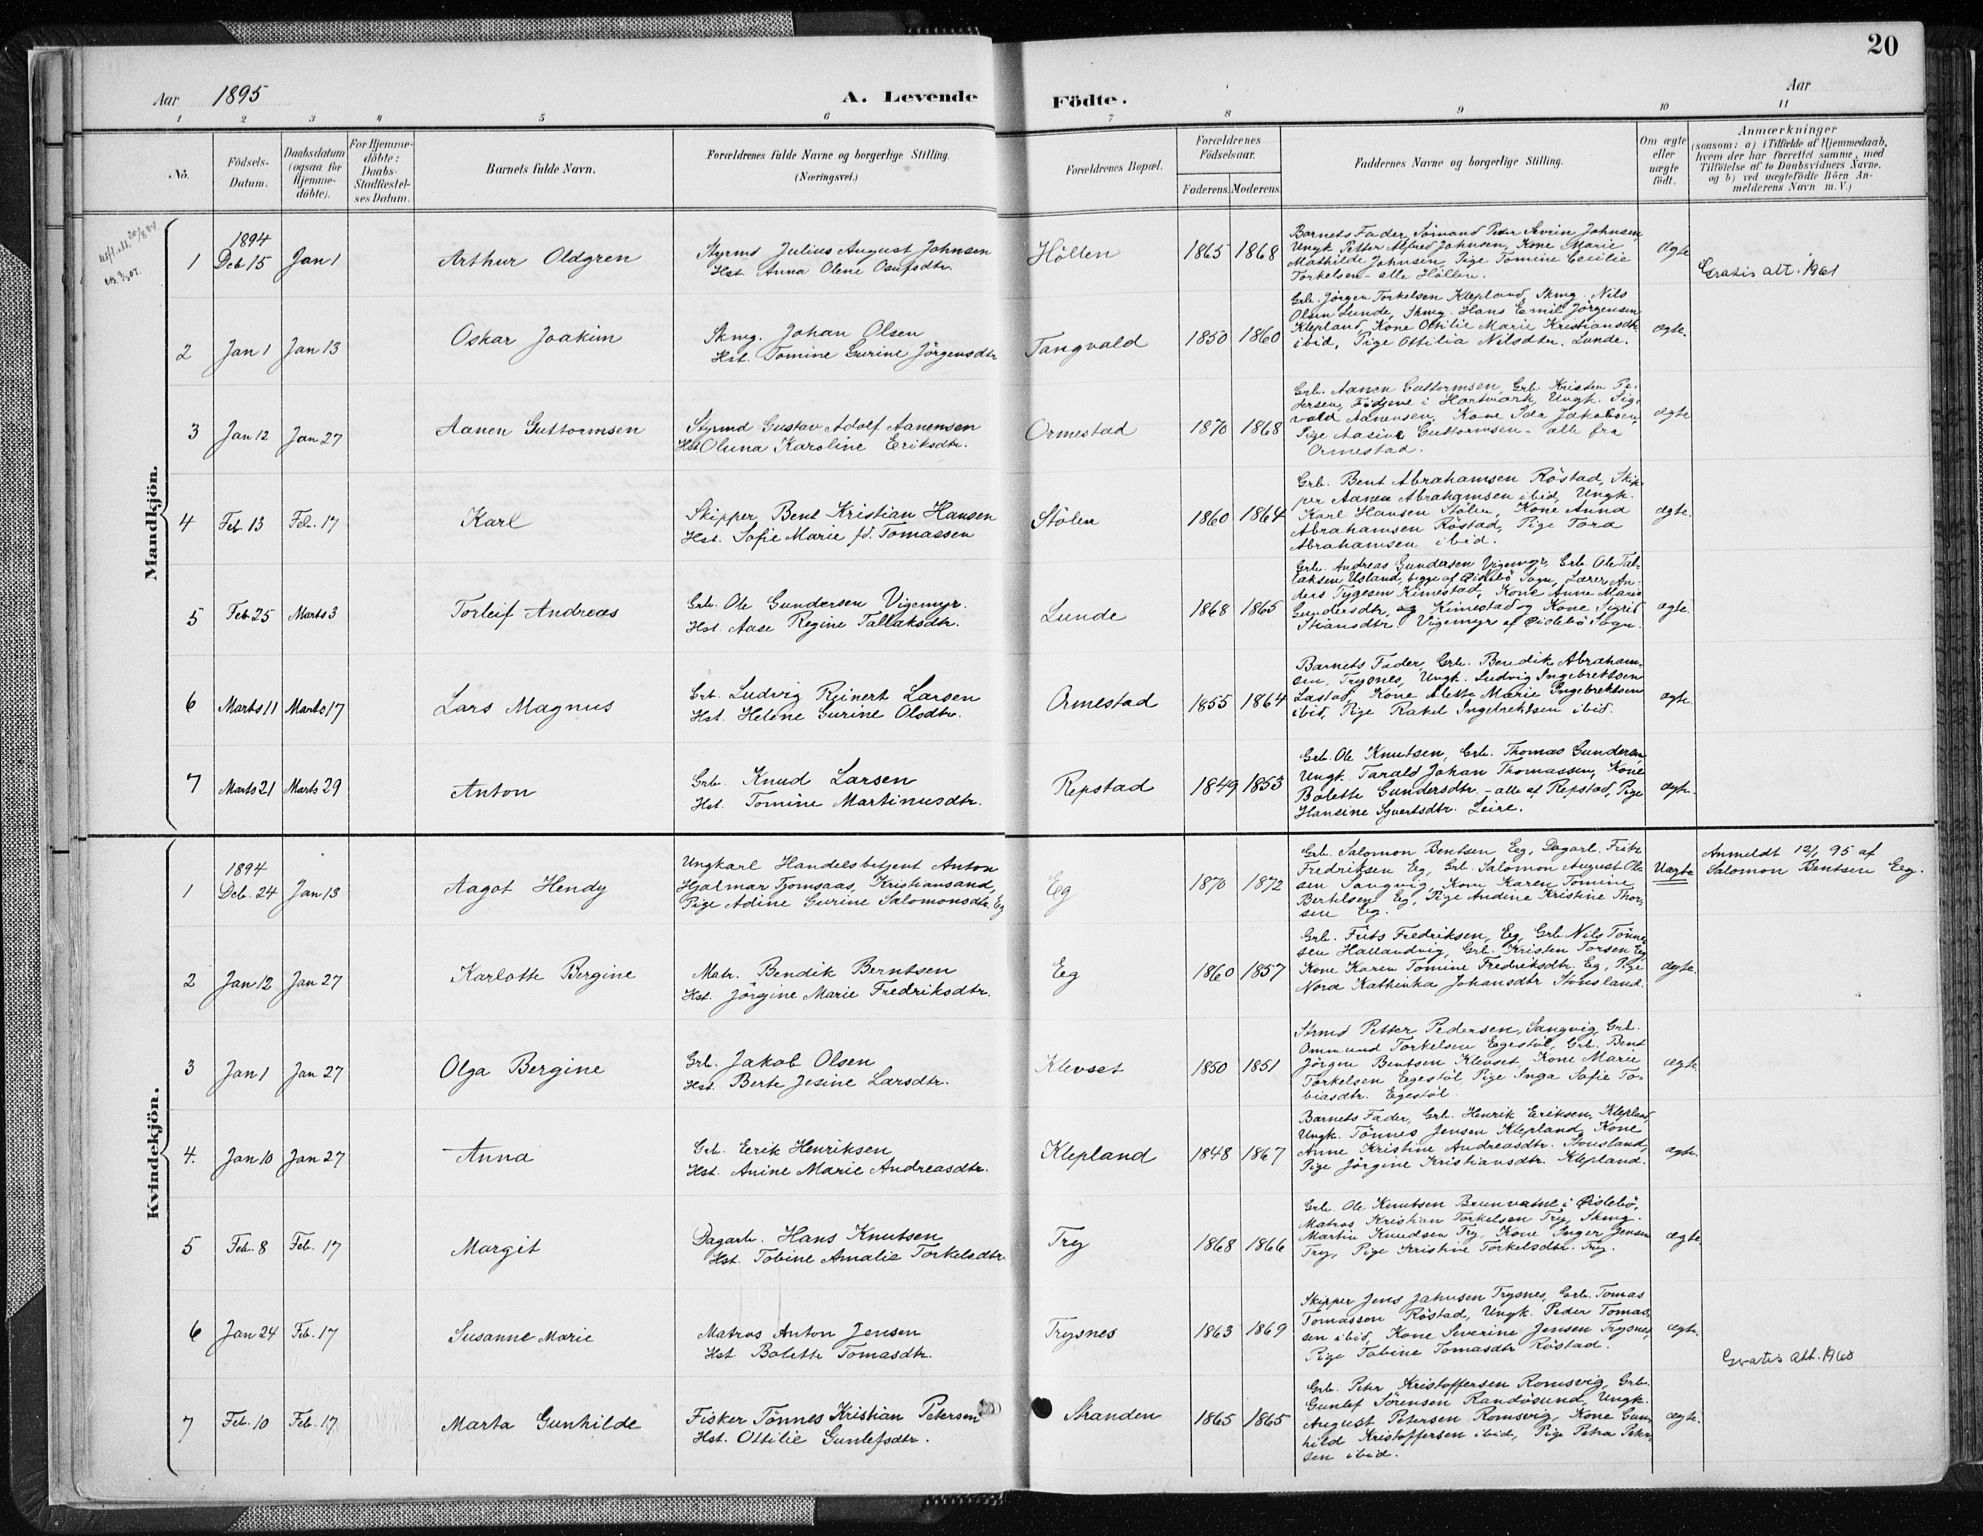 20
Aar 1895
A. Levende
Födte.
Aar
1 2 3 4 5 6 7 8 9 10 11
No.
Födsels-
Datum.
Daabsdatum
(ogsaa for
Hjemme-
döbte).
For Hjemme-
döbte:
Daabs-
Stadfestel-
ses Datum.
Barnets fulde Navn.
Forældrenes fulde Navne og borgerlige Stilling.
(Næringsvei.)
Forældrenes Bopæl.
Forældrenes
Födselsaar.
Faderens. Moderens.
Faddernes Navne og borgerlige Stilling.
Om ægte
eller
uægte
födt.
Anmærkninger
(saasom: a) i Tilfælde af Hjemmedaab,
hvem der har forrettet samme, med
Tilföielse af to Daabsvidners Navne,
og b) ved uægtefödte Börn An-
melderens Navn m. V.)
Mandkjön.
1
1894
Deb 15
Jan 1
Arthur Oldgren
Styrmd Julius August Johnsen
Hst. Anna Olene Osufsdtr.
Höllen
1865 1868
Barnets Fader, Sömand Peder Severin Johnsen,
Ungk. Petter Alfred Johnsen, Kone Marie
Mathilde Johnsen, Pige Tomine Cecilie
Torkelsen - alle Höllen.
ægte
Gratis att. 1961
2
Jan 1
Jan 13
Oskar Joakim
Skmg. Johan Olsen
Hst. Tomine Gurine Jörgensdtr
Tangvald
1850 1860
Grb. Jörgen Torkelsen Klepland, Skmg. Nils
Olsen Lunde, Skmg. Hans Emil Jörgensen
Klepland, Kone Ottilie Marie Kristiansdtr
ibid, Pige Ottilia Nilsdtr. Lunde.
ægte.
3
Jan 12
Jan 27
Aanen Guttormsen
Styrmd Gustav Adolf Aanensen
Hst Oluna Karoline Eriksdtr.
Ormestad
1870 1868
Grb. Aanen Guttormsen, Grb. Kristen Pe-
dersen, Fidjene i Hartmark, Ungk. Sig-
vald Aanensen, Kone Ida Jakobsen,
Pige Aasine Guttormsen - alle fra
Ormestad.
ægte
4
Feb. 13
Feb. 17
Karl
Skipper Bent Kristian Hansen
Hst. Sofie Marie fd. Tomassen
Stölen
1860 1864
Grb. Bent Abrahamsen Röstad, Skip-
per Aanen Abrahamsen ibid, Ungk.
Karl Hansen Stölen, Kone Anna
Abrahamsen Röstad, Pige Tora
Abrahamsen ibid.
ægte.
5
Feb. 25
Marts 3
Torleif Andreas
Grb. Ole Gundersen Vigemyr.
Hst. Aase Regine Tallaksdtr.
Lunde
1868 1865
Grb. Andreas Gundersen Vigemyr, Grb. Ole Tal-
laksen Usland, begge af Øislebö Sogn, Lærer An-
ders Tygesen Kimestad, Kone Anne Marie
Gundersdtr og Kimestad og Kone Sigrid
Stiansdtr. Vigemyr af Øislebö Sogn.
ægte.
6
Marts 11
Marts 17
Lars Magnus
Grb. Ludvig Reinert Larsen
Hst. Helene Gurine Olsdtr.
Ormestad
1855 1864
Barnets Fader, Grb. Bendik Abraham-
sen, Trysnes, Ungk. Ludvig Ingebrektsen
Lastad, Kone Alette Marie Ingebrektsen
ibid, Pige Rakel Ingebrektsen ibid.
ægte.
7
Marts 21
Marts 29
Anton
Grb. Knud Larsen
Hst. Tomine Martinusdtr.
Repstad
1849 1853
Grb. Ole Knutsen, Grb. Thomas Gundersen,
Ungk. Tarald Johan Thomassen, Kone
Bolette Gundersdtr. - alle af Repstad, Pige
Hansine Syvertsdtr. Leire.
ægte.
Kvindekjön.
1
1894
Deb. 24
Jan 13
Aagot Hendy
Ungkarl Handelsbetjent Anton
Hjalmar Tjomsaas, Kristiansand,
Pige Adine Gurine Salomonsdtr. Eg
Eg
1870 1872
Grb. Salomon Bentsen Eg, Dagarb. Frits
Fredriksen Eg, Grb. Salomon August Ol-
sen Sangvig, Kone Karen Tomine
Bertilsen Eg, Pige Andine Kristine Thor-
sen Eg.
Uægte
Anmeldt 12/1 95 af
Salomon Bentsen Eg.
2
Jan 12
Jan 27
Karlotte Bergine
Matr. Bendik Berntsen
Hst. Jörgine Marie Fredriksdtr.
Eg
1860 1857
Grb. Frits Fredriksen, Eg, Grb Nils Tönne-
sen Hallandvig, Grb. Kristen Torsen Eg,
Kone Karen Tomine Fredriksdtr. Eg, Pige
Nora Kathinka Johansdtr Stousland.
ægte.
3
Jan 1
Jan 27
Olga Bergine
Grb. Jakob Olsen
Hst. Berte Jesine Larsdtr.
Klevset
1850 1851
Strmd Petter Pedersen, Sangvig, Grb.
Ommund Torkelsen Egestöl, Grb. Bent
Jörgen Bentsen Klevset, Kone Marie
Torkelsen Egestöl, Pige Inga Sofie To-
biasdtr. Egestöl.
ægte.
4.
Jan 10
Jan 27
Anna
Grb. Erik Henriksen
Hst. Anine Marie Andreasdtr.
Klepland
1848 1867
Barnets Fader, Grb. Henrik Eriksen, Klepland,
Ungk. Tönnes Jensen Klepland, Kone
Anne Kristine Andreasdtr. Stousland,
Pige Jörgine Kristiansdtr. Klepland.
ægte.
5
Feb. 8
Feb. 17
Margit
Dagarb. Hans Knutsen
Hst. Tobine Amalie Torkelsdtr.
Try
1868 1866
Grb. Ole Knutsen Brunvatne i Øislebö,
Matros Kristian Torkelsen Try, Skmg.
Martin Knudsen Try, Kone Inger Jensen
Try, Pige Kristine Torkelsdtr. Try.
ægte.
6
Jan 24
Feb. 17
Susanne Marie
Matros Anton Jensen
Hst. Bolette Tomasdtr.
Trysnes
1863 1869
Skipper Jens Jahnsen Trysnes, Grb. Tomas
Tomassen Röstad, Ungk. Peder Tomas-
sen ibid, Kone Severine Jensen Trysnes,
Pige Tobine Tomasdtr Röstad.
ægte.
Gratis att. 1960
7
Feb. 10
Feb. 17
Marta Gunhilde
Fisker Tönnes Kristian Petersen
Hst. Ottilie Gunlefsdtr.
Stranden
1865 1865
Grb. Peter Kristoffersen Romsvig, Grb.
Gunlef Sörensen Randösund, Ungk.
August Petersen Romsvig, Kone Gun-
hild Kristoffersen ibid, Pige Petra Peter-
sen ibid.
ægte.